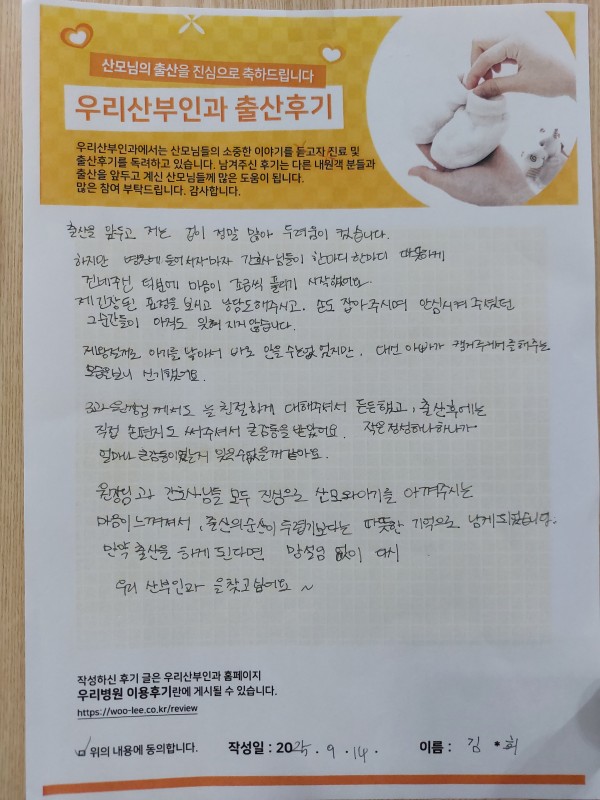 산모님의 출산을 진심으로 축하드립니다
우리산부인과 출산후기
우리산부인과에서는 산모님들의 소중한 이야기를 듣고자 진료 및
출산후기를 독려하고 있습니다. 남겨주신 후기는 다른 내원객 분들과
출산을 앞두고 계신 산모님들께 많은 도움이 됩니다.
많은 참여 부탁드립니다. 감사합니다.
출산을 앞두고 저는 겁이 정말 많아 두려움이 컸습니다.
하지만 병원에 들어서자마자 간호사님들이 한마디 한마디 따뜻하게
건네주신 덕분에 마음이 조금씩 풀리기 시작했어요
제 긴장된 표정을 보시고 농담도해주시고. 손도 잡아주시며 안심시켜 주셨던
그순간들이 아직도 잊혀 지지 않습니다.
제왕절개로 아기를 낳아서 바로 안을 수는없었지만. 대신 아빠가 캥거루케어를해주는
모습을보니 신기했어요.
3과 원장님께서도 늘 친절하게 대해주셔서 든든했고, 출산후에는
직접 손편지도 써주셔서 큰감동을받았어요. 작은정성하나하나가
얼마나 큰감동이였는지 잊을수없을꺼같아요.
원장님과 간호사님들 모두 진심으로 산모와아기를 아껴주시는
마음이느껴져서, 출산의순간이 두렵기보다는 따뜻한 기억으로 남게되었습니다.
만약 출산을 하게 된다면 망설임 없이 다시
우리 산부인과 을찾고싶어요 ~
작성하신 후기 글은 우리산부인과 홈페이지
우리병원 이용후기란에 게시될 수 있습니다.
https://woo-lee.co.kr/review
위의 내용에 동의합니다. 작성일 : 2025. 9. 14. 이름 : 김 * 희